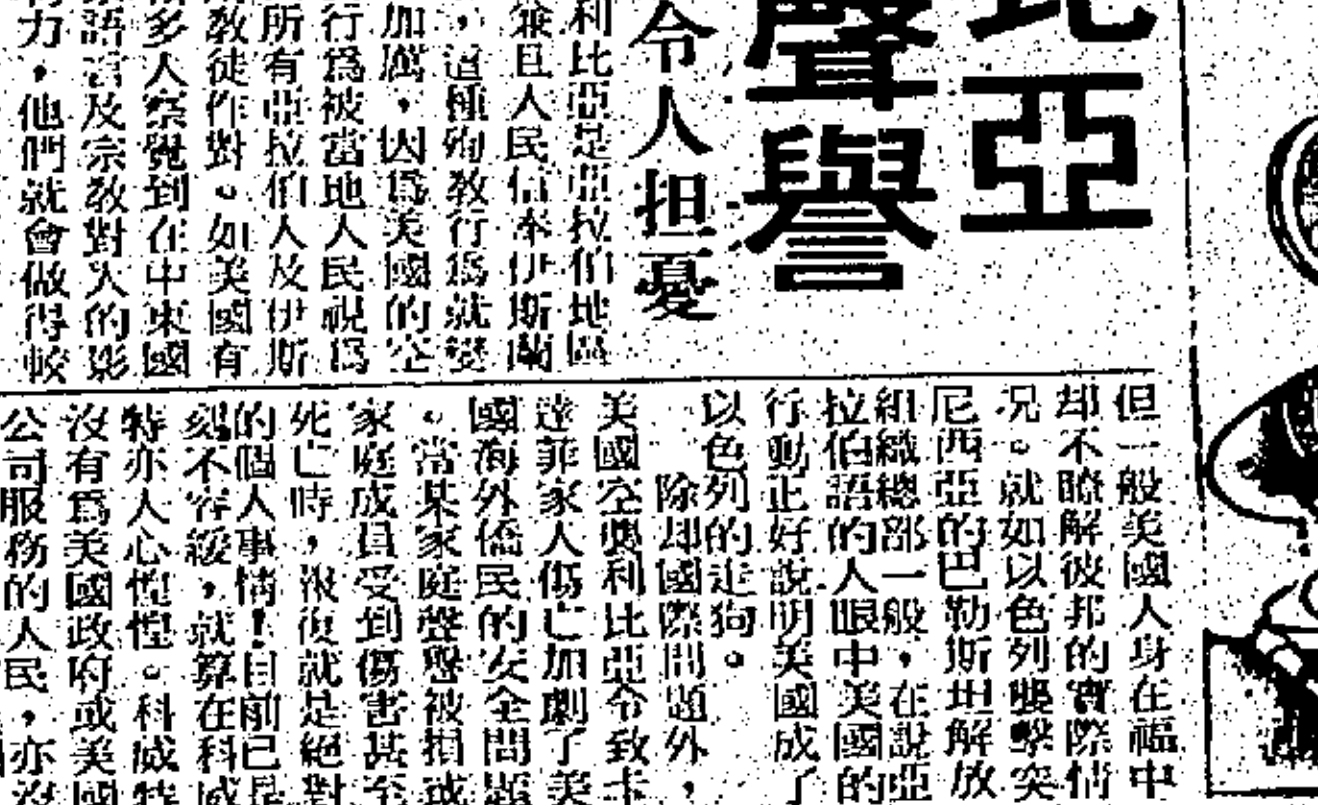 比亞
聲譽
令人担憂
利比亞是亞拉伯地區
兼且人民信奉伊斯蘭
，這種殉教行為就變
加厲，因為美國的空
行為被當地人民視為
所有亞拉伯人及伊斯
教徒作對。如美國有
多人察覺到在中東國
語言及宗教對人的影
力，他們就會做得較
但一般美國人身在福中
却不瞭解彼邦的實際情
況。就如以色列襲擊突
尼西亞的巴勒斯坦解放
組織總部一般，在說亞
拉伯語的人眼中美國的
行動正好說明美國成了
以色列的走狗。
除却國際問題外，
美國空襲利比亞令致卡
達菲家人傷亡加劇了美
國海外僑民的安全問題
。當某家庭聲譽被損或
家庭成員受到傷害甚至
死亡時，報復就是絕對
的個人事情！目前已是
刻不容緩，就算在科威
特亦人心惶惶。科威特
沒有為美國政府或美國
公司服務的人民，亦沒